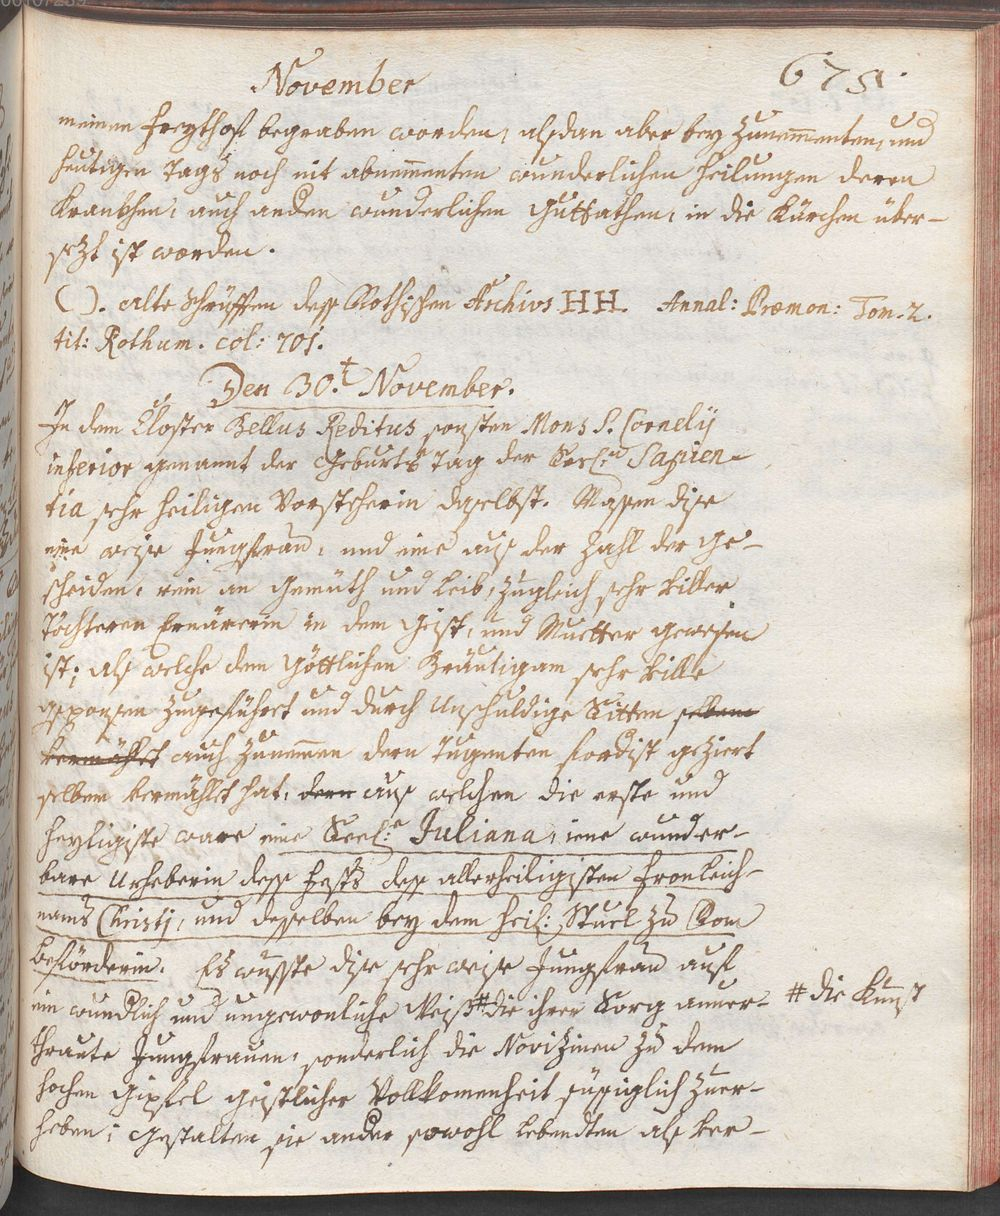 November 675.
meinen freythof begraben worden, alsdan aber bey zunemmenten, und
heutigen Tags noch nit abnemmenten wunderlichen heilungen deren
Krankhen, auch anden wunderlichen Gutthathen, in die Kürchen über-
sezt ist worden.
( ). alte schrüfften dess Rothischen Archivs HH. Annal: Præmon: Tom. 2.
tit: Rothum. col: 701.
Den 30.t November.
In dem Closter Bellus Reditus sonsten Mons S. Cornelij
inferior genannt der Geburts Tag der Seel:n Sapien-
tia sehr heiligen Vorsteherin daselbst. Massen dise
eine weise Jungfrau, und eine aus der Zahl der ge-
scheiden, rein an gemüth und Leib, zugleich sehr viller
Töchteren Ernärerin in dem Geist, und Muetter gewesen
ist; als welche dem göttlichen Bräutigam sehr ville
gesponsen zugeführt und durch Unschuldige Sitten selbem
vermählt auch zunemmen dern Tugenten fordist geziert
selbem vermählt hat, dern aus welchen die erste und
heyligiste ware eine Seel:e Juliana, iene wunder-
bare Urheberin dess Fests dess allerheiligisten fronleich-
nams Christj, und desselben bey dem heil: Stuel zu Rom
beförderin. Es wusste dise sehr weise Jungfrau auf
ein wundlich und ungewonliche Weiss # die ihrer Sorg anver- # die Kunst
thraute Jungfrauen, sonderlich die Novizinen zu dem
hochen Gipfel geistlicher Vollkomenheit füeglich zuer-
heben; gestalten sie ander sowohl lebendten als ver-